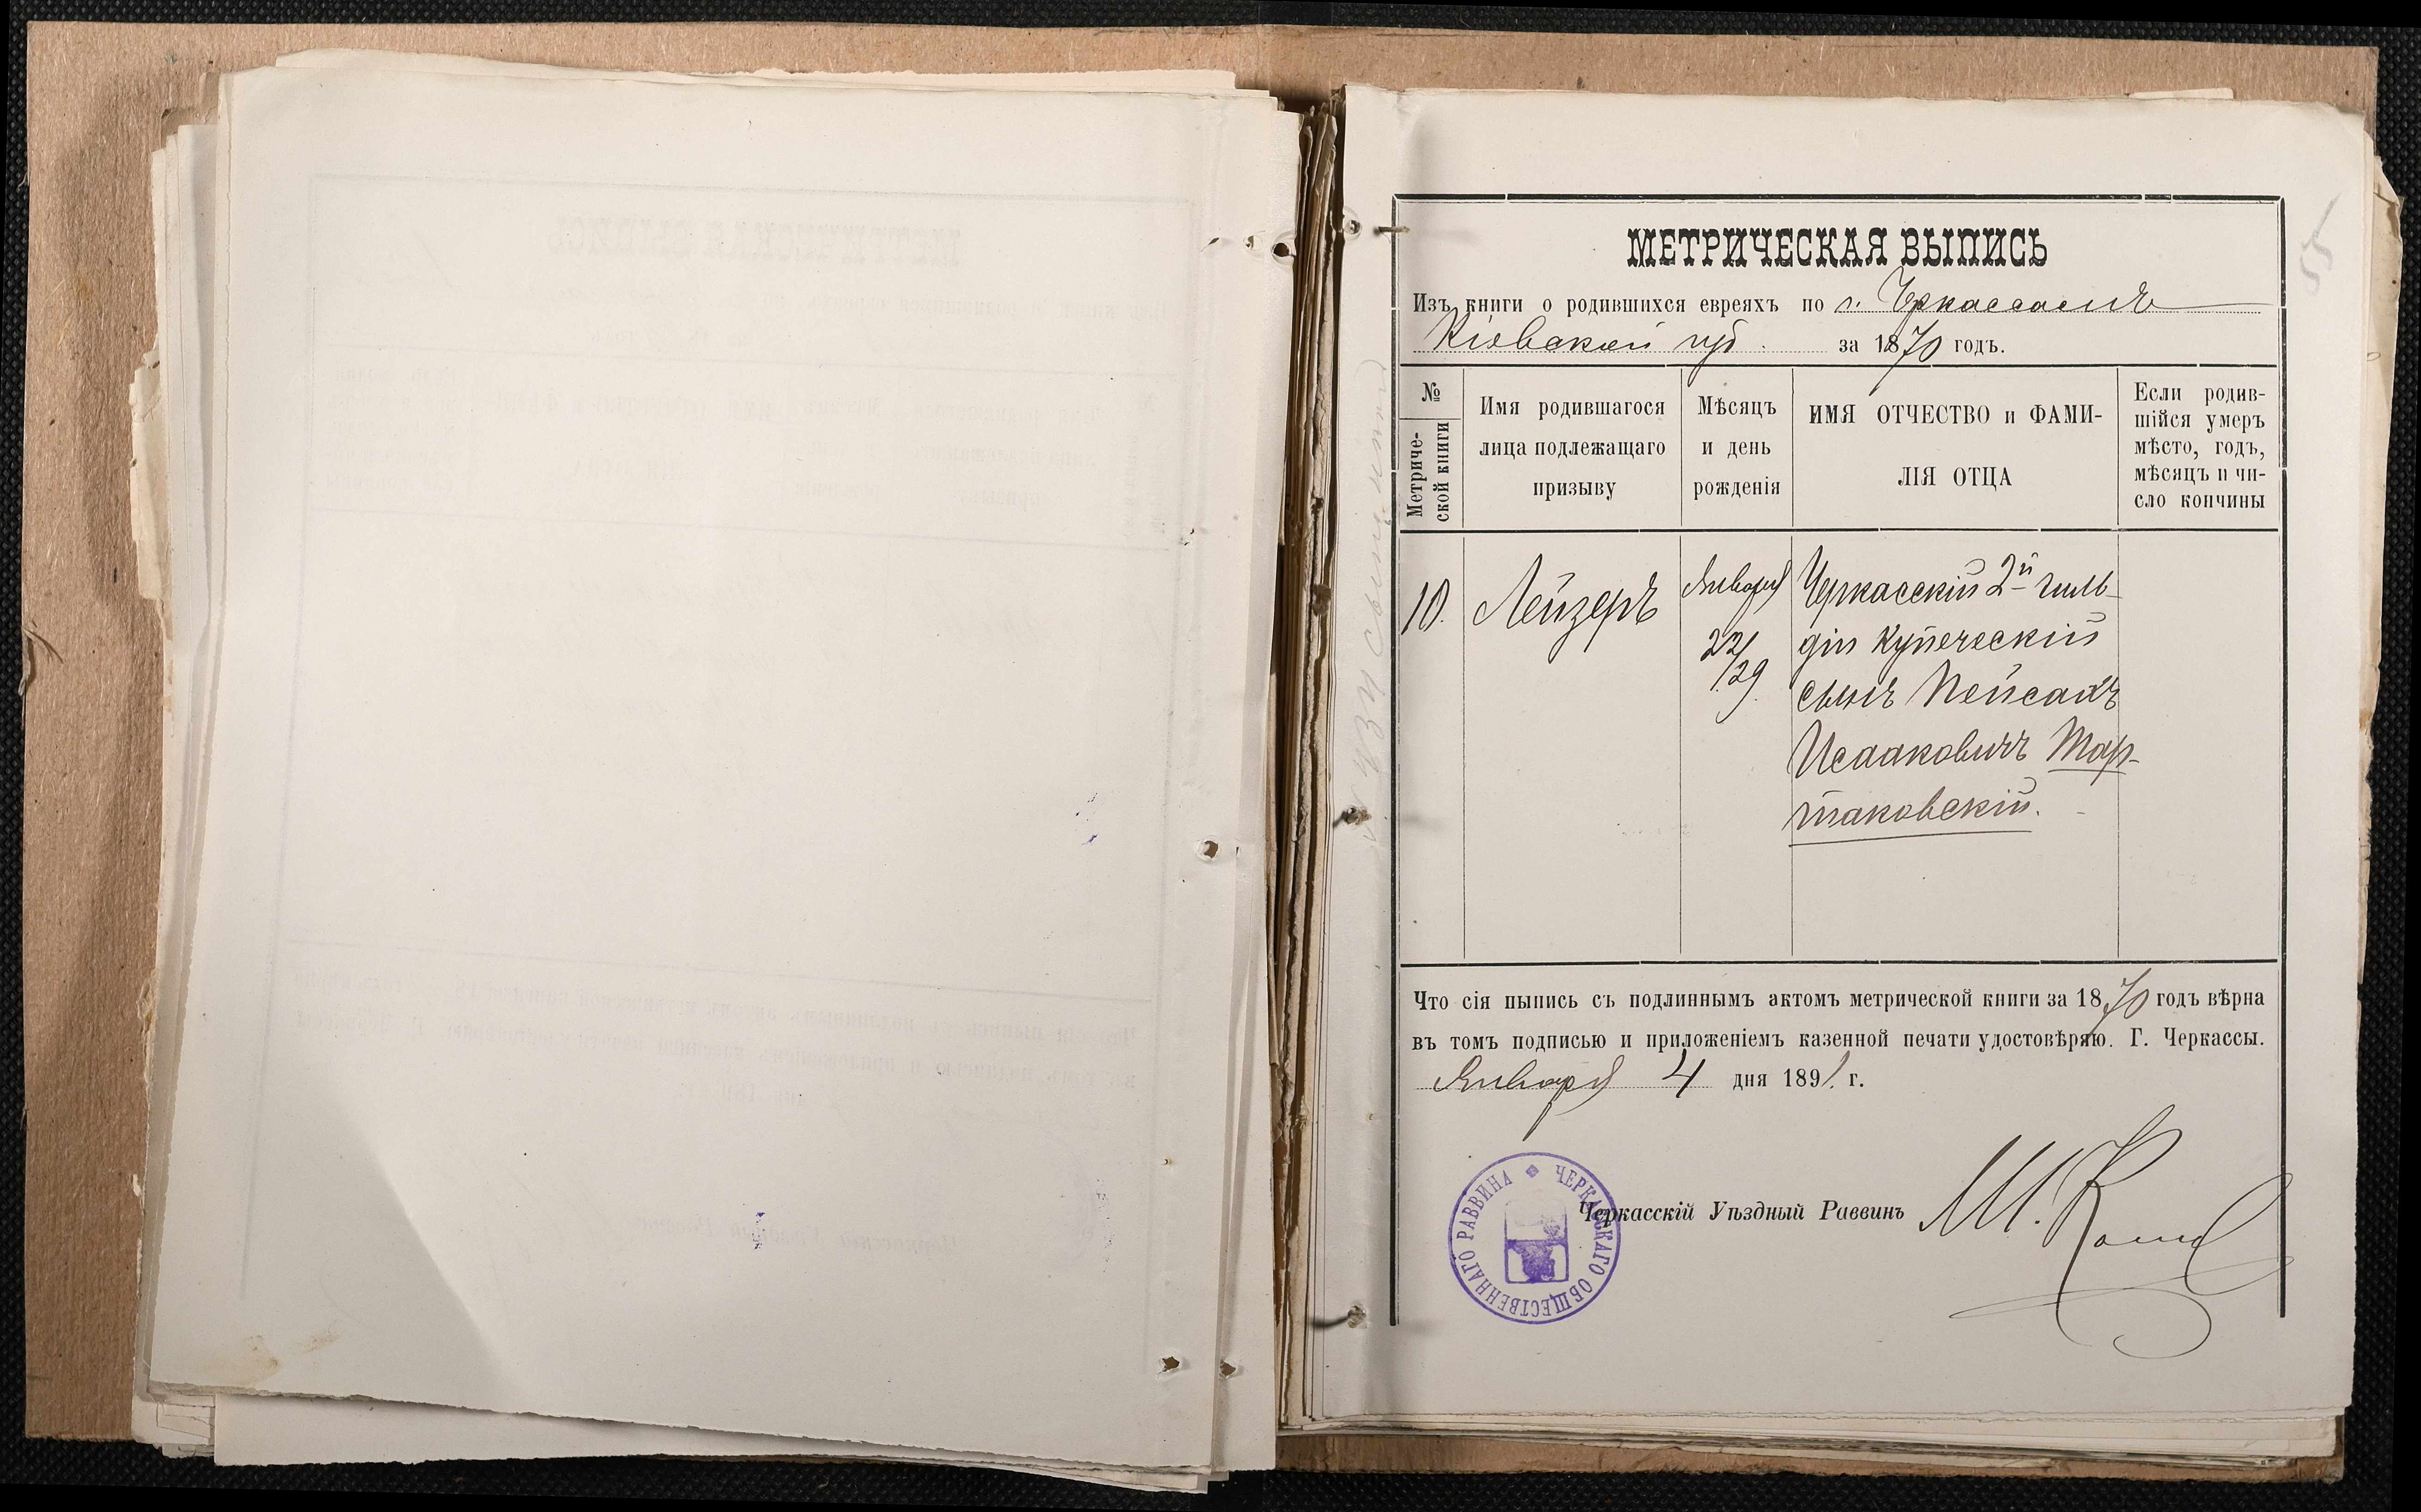 5
МЕТРИЧЕСКАЯ ВЫПИСЬ
Изъ книги о родившихся евреяхъ по г. Черкассамъ
Кіевской губ. за 1870 годъ.
№ Метриче-ской книги
Имя родившагося
лица подлежащаго
призыву
Мѣсяцъ
и день
рожденія
ИМЯ ОТЧЕСТВО и ФАМИ-
ЛІЯ ОТЦА
Если родив-
шійся умеръ
мѣсто, годъ,
мѣсяцъ и чи-
сло кончины
10.
Лейзеръ
Января
22/29
Черкасскій 2й гиль-
діи купеческій
сынъ Пейсахъ
Исааковичъ Мар-
таковскій.
Что сія выпись съ подлиннымъ актомъ метрической книги за 1870 годъ вѣрна
въ томъ подписью и приложеніемъ казенной печати удостовѣряю. Г. Черкассы.
Января 4 дня 1891 г.
ЧЕРКАССКАГО ОБЩЕСТВЕННАГО РАВВИНА
Черкасскій Уѣздный Раввинъ